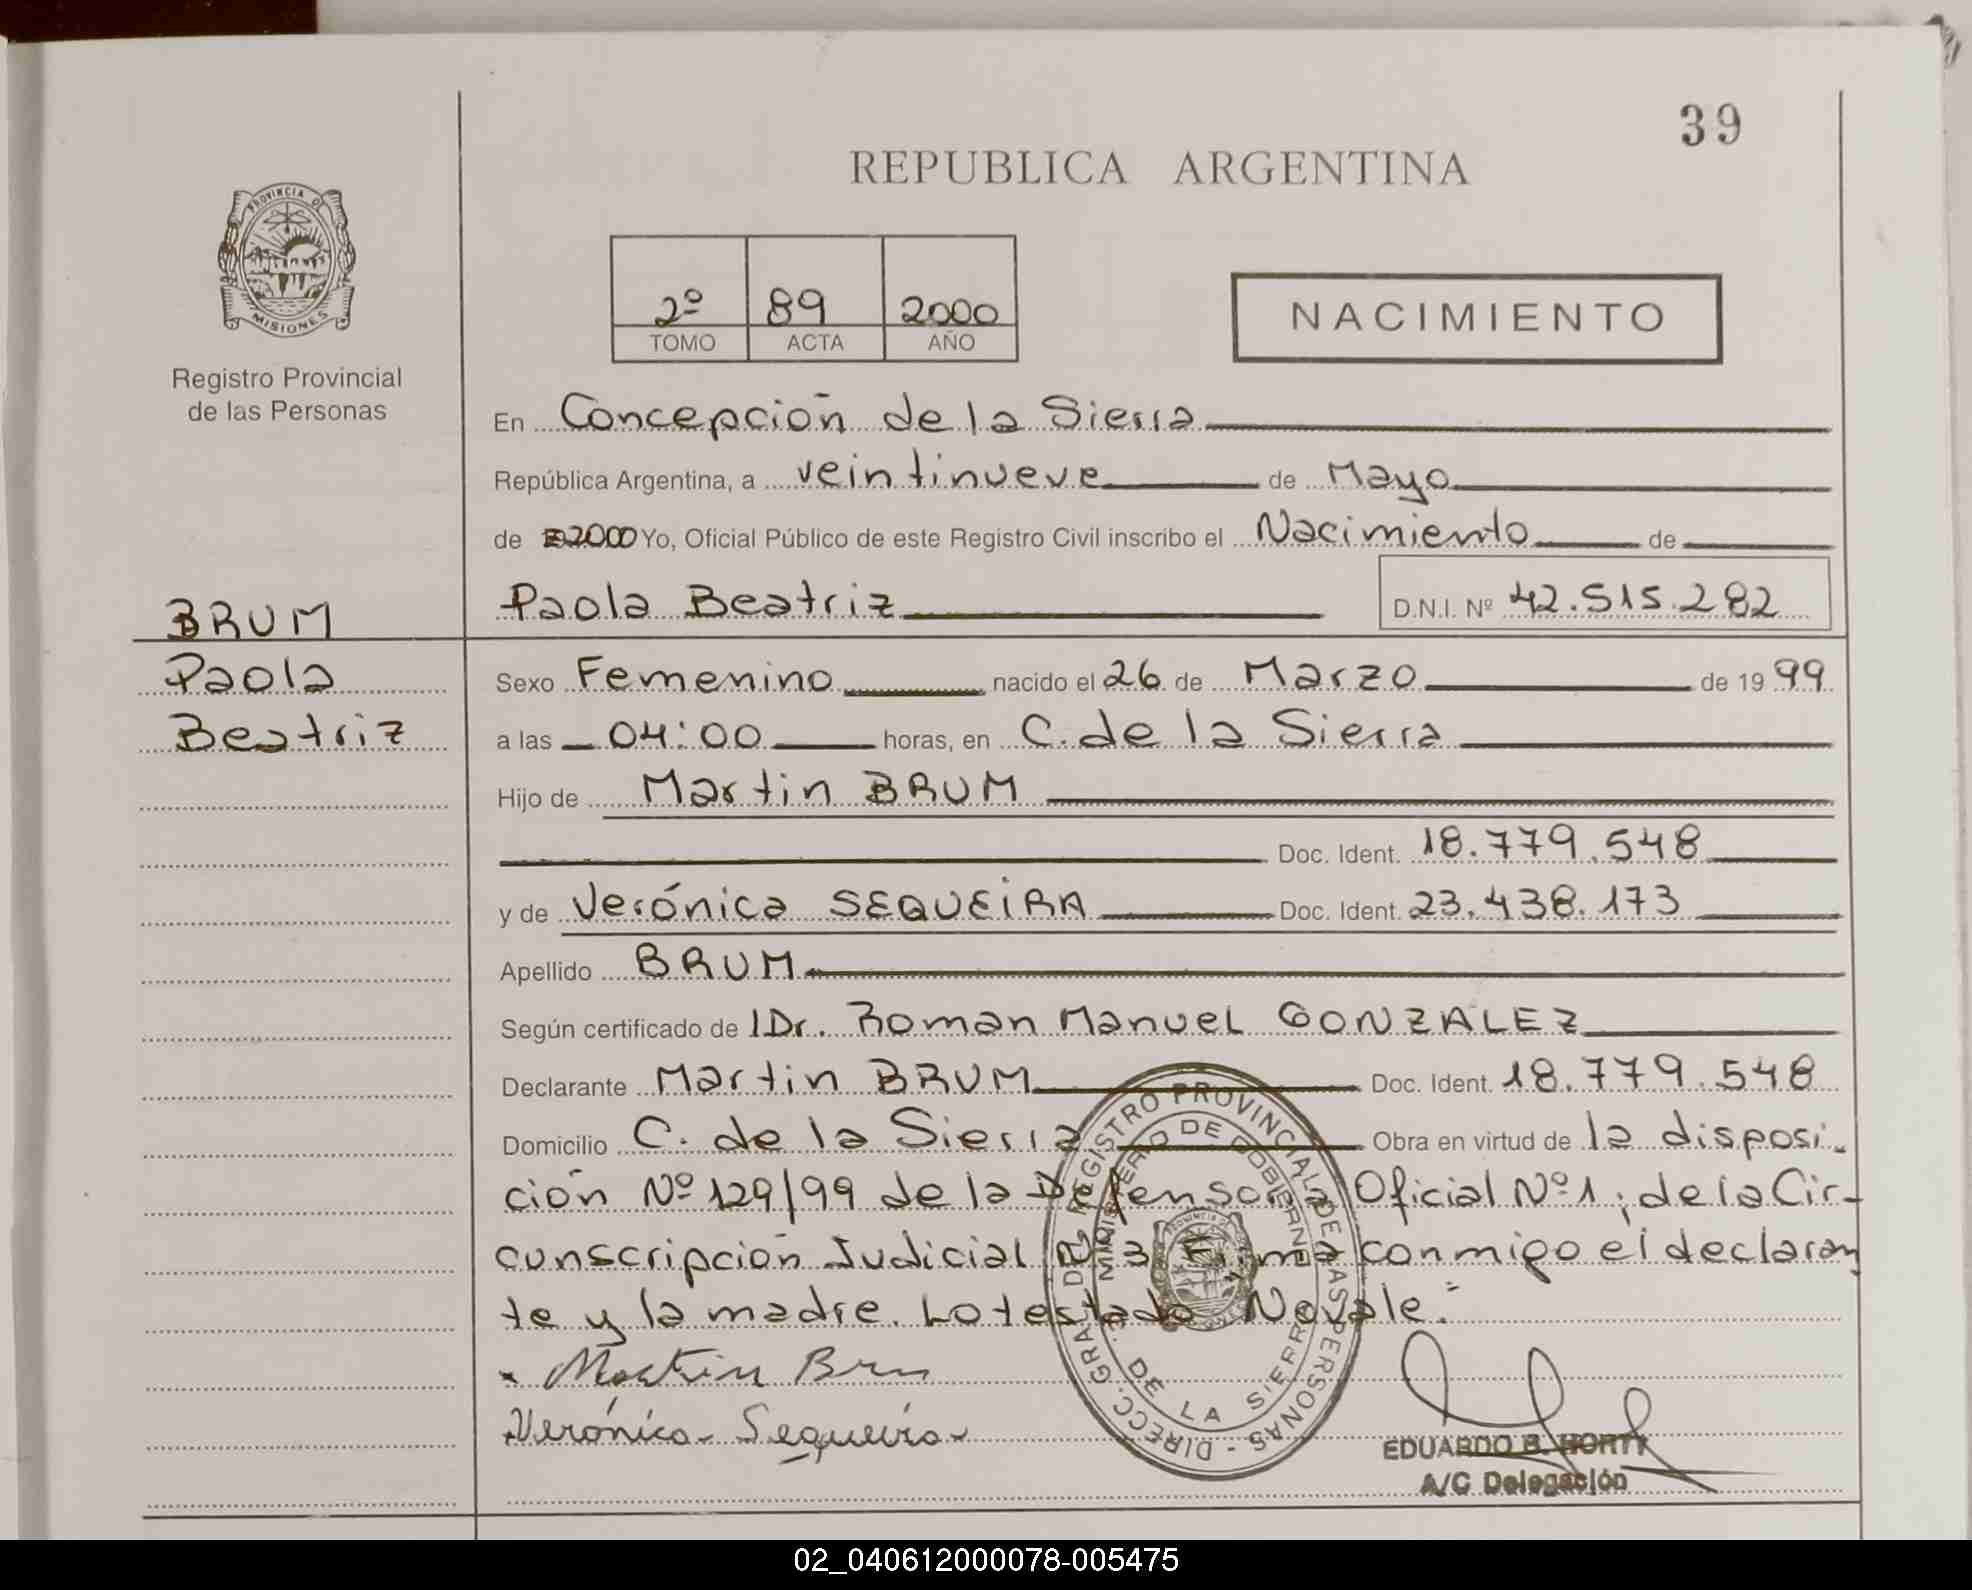 39
REPUBLICA ARGENTINA
PROVINCIA D
MISIONES
Registro Provincial
de las Personas
2º 89 2000
TOMO ACTA AÑO
NACIMIENTO
En Concepción de la Sierra
República Argentina, a veintinueve de Mayo
de 2000 Yo, Oficial Público de este Registro Civil inscribo el Nacimiento de
Paola Beatriz D.N.I. Nº 42.515.282
BRUM
Paola
Beatriz
Sexo Femenino nacido el 26 de Marzo de 19 99
a las 04:00 horas, en C. de la Sierra
Hijo de Martin BRUM
Doc. Ident. 18.779.548
y de Verónica SEQUEIRA Doc. Ident. 23.438.173
Apellido BRUM
Según certificado de Dr. Roman Manuel GONZALEZ
Declarante Martin BRUM Doc. Ident. 18.779.548
Domicilio C. de la Sierra Obra en virtud de la disposi-
ción Nº 129/99 de la Defensoria Oficial Nº 1, de la Cir-
cunscripción Judicial Nº 3 Firma conmigo el declaran
te y la madre. Lo testado "No vale."
Martin Brum
Verónica Sequeira
DIRECC. GRAL DEL REGISTRO PROVINCIAL DE LAS PERSONAS -
MINISTERIO DE GOBIERNO
DE LA SIERRA
EDUARDO B. HORTT
A/C Delegación
02_040612000078-005475